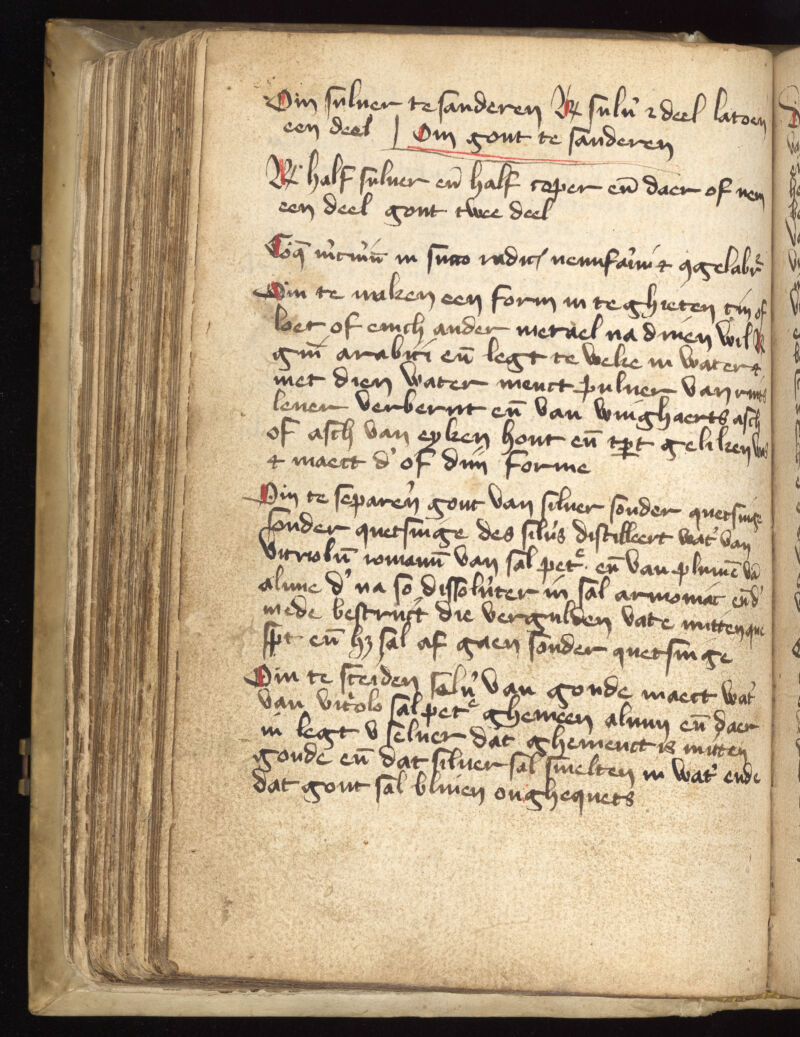 Om suluer te sanderen ℞ sulu' 2 deel latoen
een deel | Om gout te sanderen
℞ half suluer en̄ half coper en̄ daer of nem
een deel gout twee deel
Coq̄ in succo radic nenufarini
Om te maken een form in te ghieten tin of
loet of enich ander metael na dinen wil ℞
gm̄i arabici en̄ legt te weke in water &
met dien water menct puluer van
leuer verbernt en̄ van wingharts asch
of asch van eyken hout en̄ geliken
& maect d' of din forme
Om te separen̄ gout van siluer sonder quetsinge
sonder quetsinge des silu's distilleert wat' van
vitriolū romanū van sal petre en̄ van plumē
alune d' na so dissolu'ter in sal armoniac en̄ d'
mede bestrijct die vergulden vate mitten
en̄ hz sal af gaen sonder quetsinge
Om te sceiden selu' van goude maect wat'
van vit'olo sal petre ghemeen alunn en̄ daer
in legt v seluer dat ghemenct is mitten
goude en̄ dat siluer sal smelten in wat' ende
dat gout sal bliuen onghequets